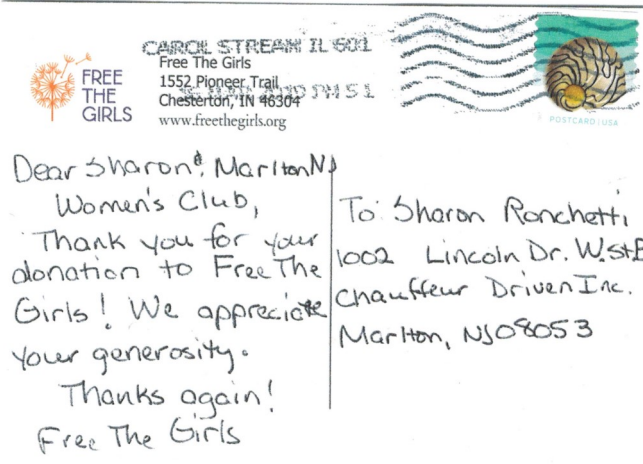 CAROL STREAM IL 601
FREE
THE
GIRLS
Free The Girls
1552 Pioneer Trail
Chesterton, IN 46304
www.freethegirls.org
PM 5 L
POSTCARD | USA
Dear Sharon & Marlton NJ
Women's Club,
Thank you for your
donation to Free The
Girls! We appreciate
your generosity.
Thanks again!
Free The Girls
To Sharon Ronchetti
1002 Lincoln Dr. W. St B
Chauffeur Driven Inc.
Marlton, NJ 08053